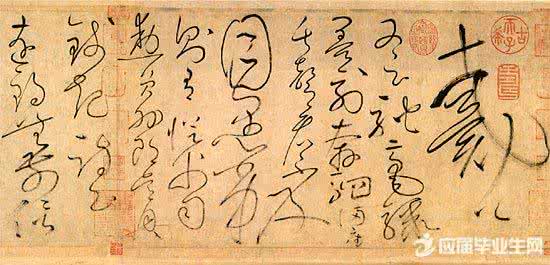 戴公
又云馳毫驟
墨列奔駟滿座
失聲看不及
目愚劣
則有從父司
勳員外郎吳興
錢起詩云
遠錫無前侶
古希天子
壽
应届毕业生网